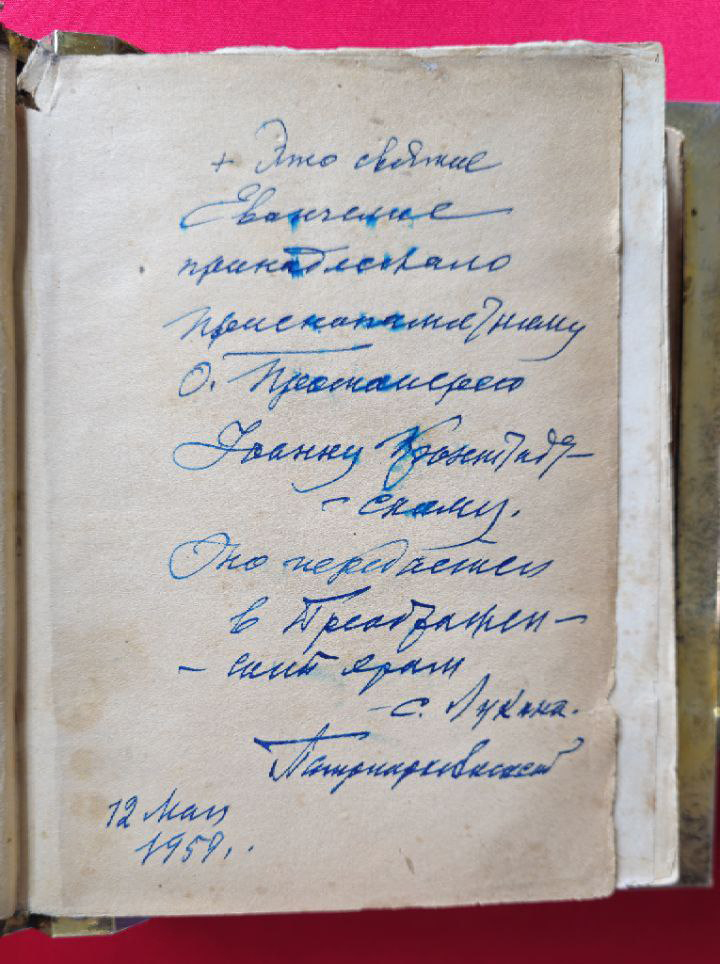 + Это святое
Евангелие
принадлежало
Приснопамятному
О. Протоиерею
Іоанну Кронштадт-
- скому.
Оно передается
в Преображен-
- ский храм
с. Лукина.
12 Мая
1959.